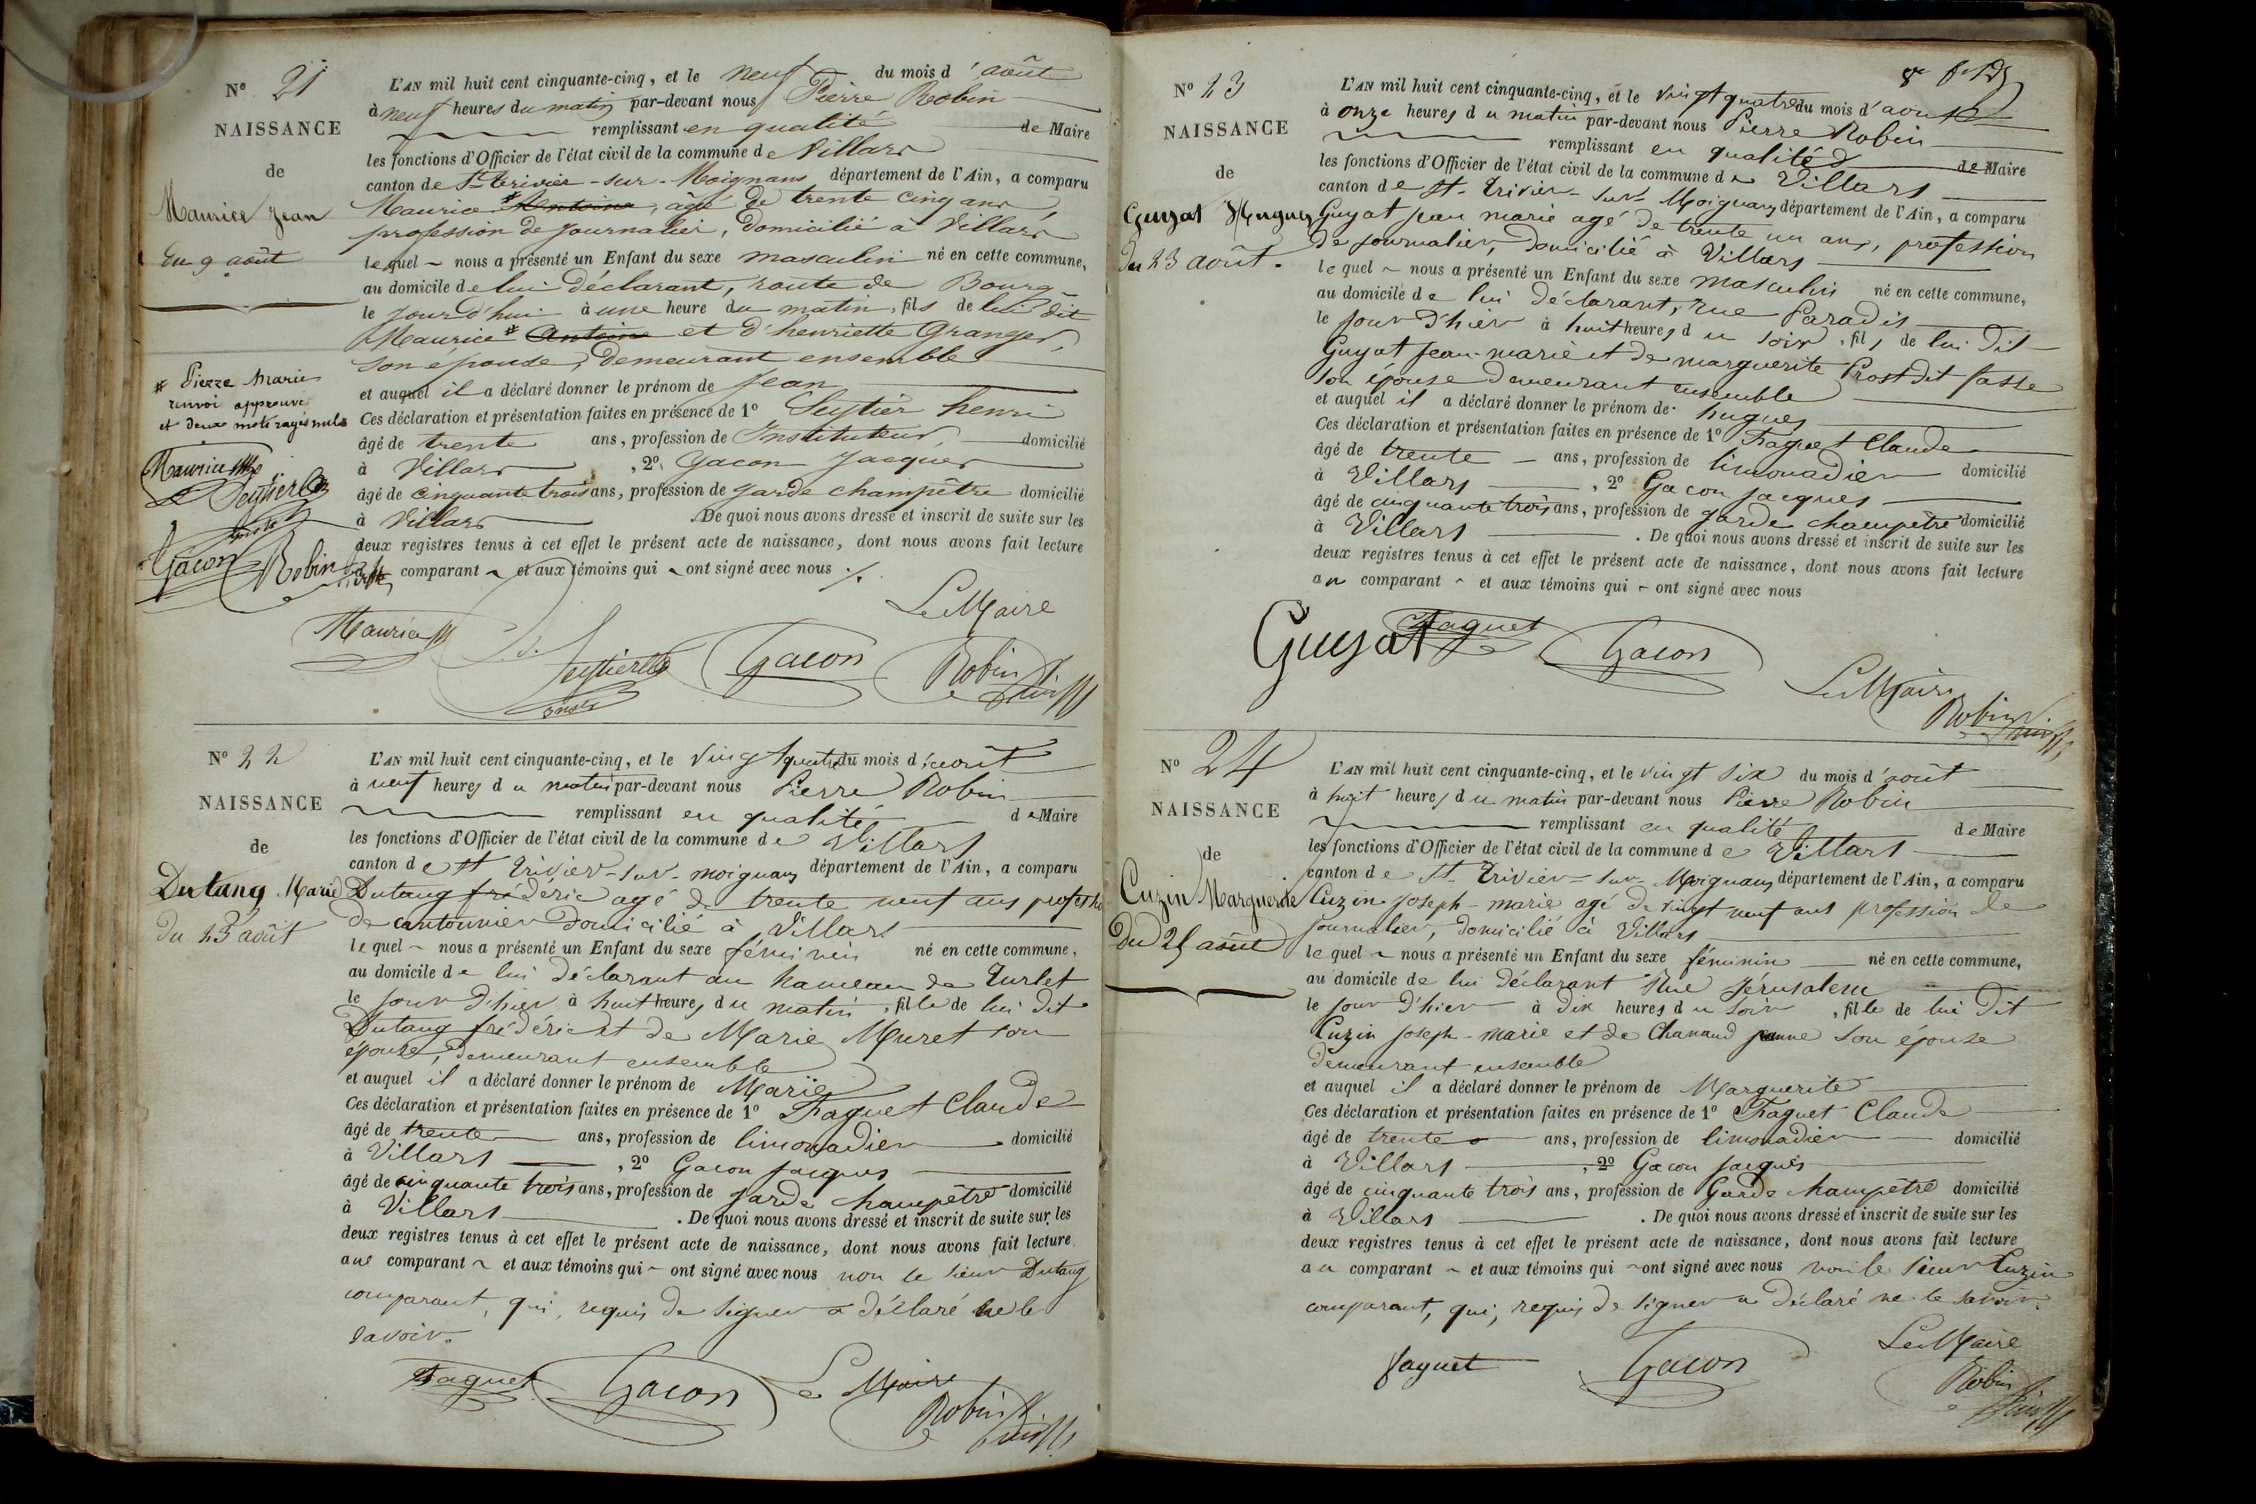 N° 21
NAISSANCE
de
Maurice Jean
Du 9 août
L'AN mil huit cent cinquante-cinq, et le neuf du mois d'août
à neuf heures du matin par-devant nous Pierre Robin
remplissant en qualité de Maire
les fonctions d'Officier de l'état civil de la commune de Villars
canton de St Trivier-sur-Moignans département de l'Ain, a comparu
Maurice * Antoine, âgé de trente cinq ans,
profession de journalier, domicilié à Villars
lequel nous a présenté un Enfant du sexe masculin né en cette commune,
au domicile de lui déclarant, route de Bourg
le jour d'hui à une heure du matin, fils de lui dit
Maurice * Antoine et d'henriette Granger,
son épouse, demeurant ensemble
et auquel il a déclaré donner le prénom de Jean
Ces déclaration et présentation faites en présence de 1° Seytier henri
âgé de trente ans, profession de Instituteur, domicilié
à Villars, 2° Gacon Jacques
âgé de cinquante trois ans, profession de garde champêtre domicilié
à Villars. De quoi nous avons dressé et inscrit de suite sur les
deux registres tenus à cet effet le présent acte de naissance, dont nous avons fait lecture
comparant et aux témoins qui ont signé avec nous ./.
* Pierre Marie
renvoi approuvé
et deux mots rayés nuls
Maurice
Seytier
Gacon Robin
Le Maire
Maurice Seytier Gacon Robin
N° 22
NAISSANCE
de
Dutang Marie
Du 23 août
L'AN mil huit cent cinquante-cinq, et le vingt quatre du mois d'août
à neuf heures du matin par-devant nous Pierre Robin
remplissant en qualité de Maire
les fonctions d'Officier de l'état civil de la commune de Villars
canton de St Trivier-sur-moignans département de l'Ain, a comparu
Dutang frédéric agé de trente neuf ans profession
de cantonnier domicilié à Villars
lequel nous a présenté un Enfant du sexe féminin né en cette commune,
au domicile de lui déclarant au hameau de Turlet
le jour d'hier à huit heures du matin, fille de lui dit
Dutang frédéric et de Marie Muret son
épouse, demeurant ensemble
et auquel il a déclaré donner le prénom de Marie
Ces déclaration et présentation faites en présence de 1° Faguet Claude
âgé de trente ans, profession de limonadier domicilié
à Villars, 2° Gacon Jacques
âgé de cinquante trois ans, profession de garde champêtre domicilié
à Villars. De quoi nous avons dressé et inscrit de suite sur les
deux registres tenus à cet effet le présent acte de naissance, dont nous avons fait lecture
au comparant et aux témoins qui ont signé avec nous non le sieur Dutang
comparant, qui, requis de signer a déclaré ne le
savoir.
Faguet Gacon Le Maire
Robin
N° 23
NAISSANCE
de
Guyat Hugues
Du 23 août.
L'AN mil huit cent cinquante-cinq, et le vingt quatre du mois d'aout
à onze heures du matin par-devant nous Pierre Robin
remplissant en qualité de Maire
les fonctions d'Officier de l'état civil de la commune de Villars
canton de St-Trivier-sur-Moignans département de l'Ain, a comparu
Guyat Jean marie agé de trente un ans, profession
de journalier, domicilié à Villars
lequel nous a présenté un Enfant du sexe masculin né en cette commune,
au domicile de lui déclarant, rue Paradis
le jour d'hier à huit heures du soir, fils de lui dit
Guyat Jean-marie et de marguerite Prost dit
son épouse demeurant ensemble
et auquel il a déclaré donner le prénom de hugues
Ces déclaration et présentation faites en présence de 1° Faguet Claude
âgé de trente ans, profession de limonadier domicilié
à Villars, 2° Gacon Jacques
âgé de cinquante trois ans, profession de garde champêtre domicilié
à Villars. De quoi nous avons dressé et inscrit de suite sur les
deux registres tenus à cet effet le présent acte de naissance, dont nous avons fait lecture
au comparant et aux témoins qui ont signé avec nous
Guyat Faguet Gacon
Le Maire
Robin
N° 24
NAISSANCE
de
Cuzin Marguerite
Du 25 août
L'AN mil huit cent cinquante-cinq, et le vingt six du mois d'août
à huit heures du matin par-devant nous Pierre Robin
remplissant en qualité de Maire
les fonctions d'Officier de l'état civil de la commune de Villars
canton de St-Trivier-sur-Moignans département de l'Ain, a comparu
Cuzin Joseph-marie agé de vingt neuf ans profession de
journalier, domicilié à Villars
lequel nous a présenté un Enfant du sexe féminin né en cette commune,
au domicile de lui déclarant Rue Jérusalem
le jour d'hier à dix heures du soir, fille de lui dit
Cuzin Joseph-marie et de Chanaud Jeanne son épouse
demeurant ensemble
et auquel il a déclaré donner le prénom de Marguerite
Ces déclaration et présentation faites en présence de 1° Faguet Claude
âgé de trente ans, profession de limonadier domicilié
à Villars, 2° Gacon Jacques
âgé de cinquante trois ans, profession de Garde champêtre domicilié
à Villars. De quoi nous avons dressé et inscrit de suite sur les
deux registres tenus à cet effet le présent acte de naissance, dont nous avons fait lecture
au comparant et aux témoins qui ont signé avec nous non le sieur Cuzin
comparant, qui, requis de signer a déclaré ne le savoir.
faguet Gacon Le Maire
Robin